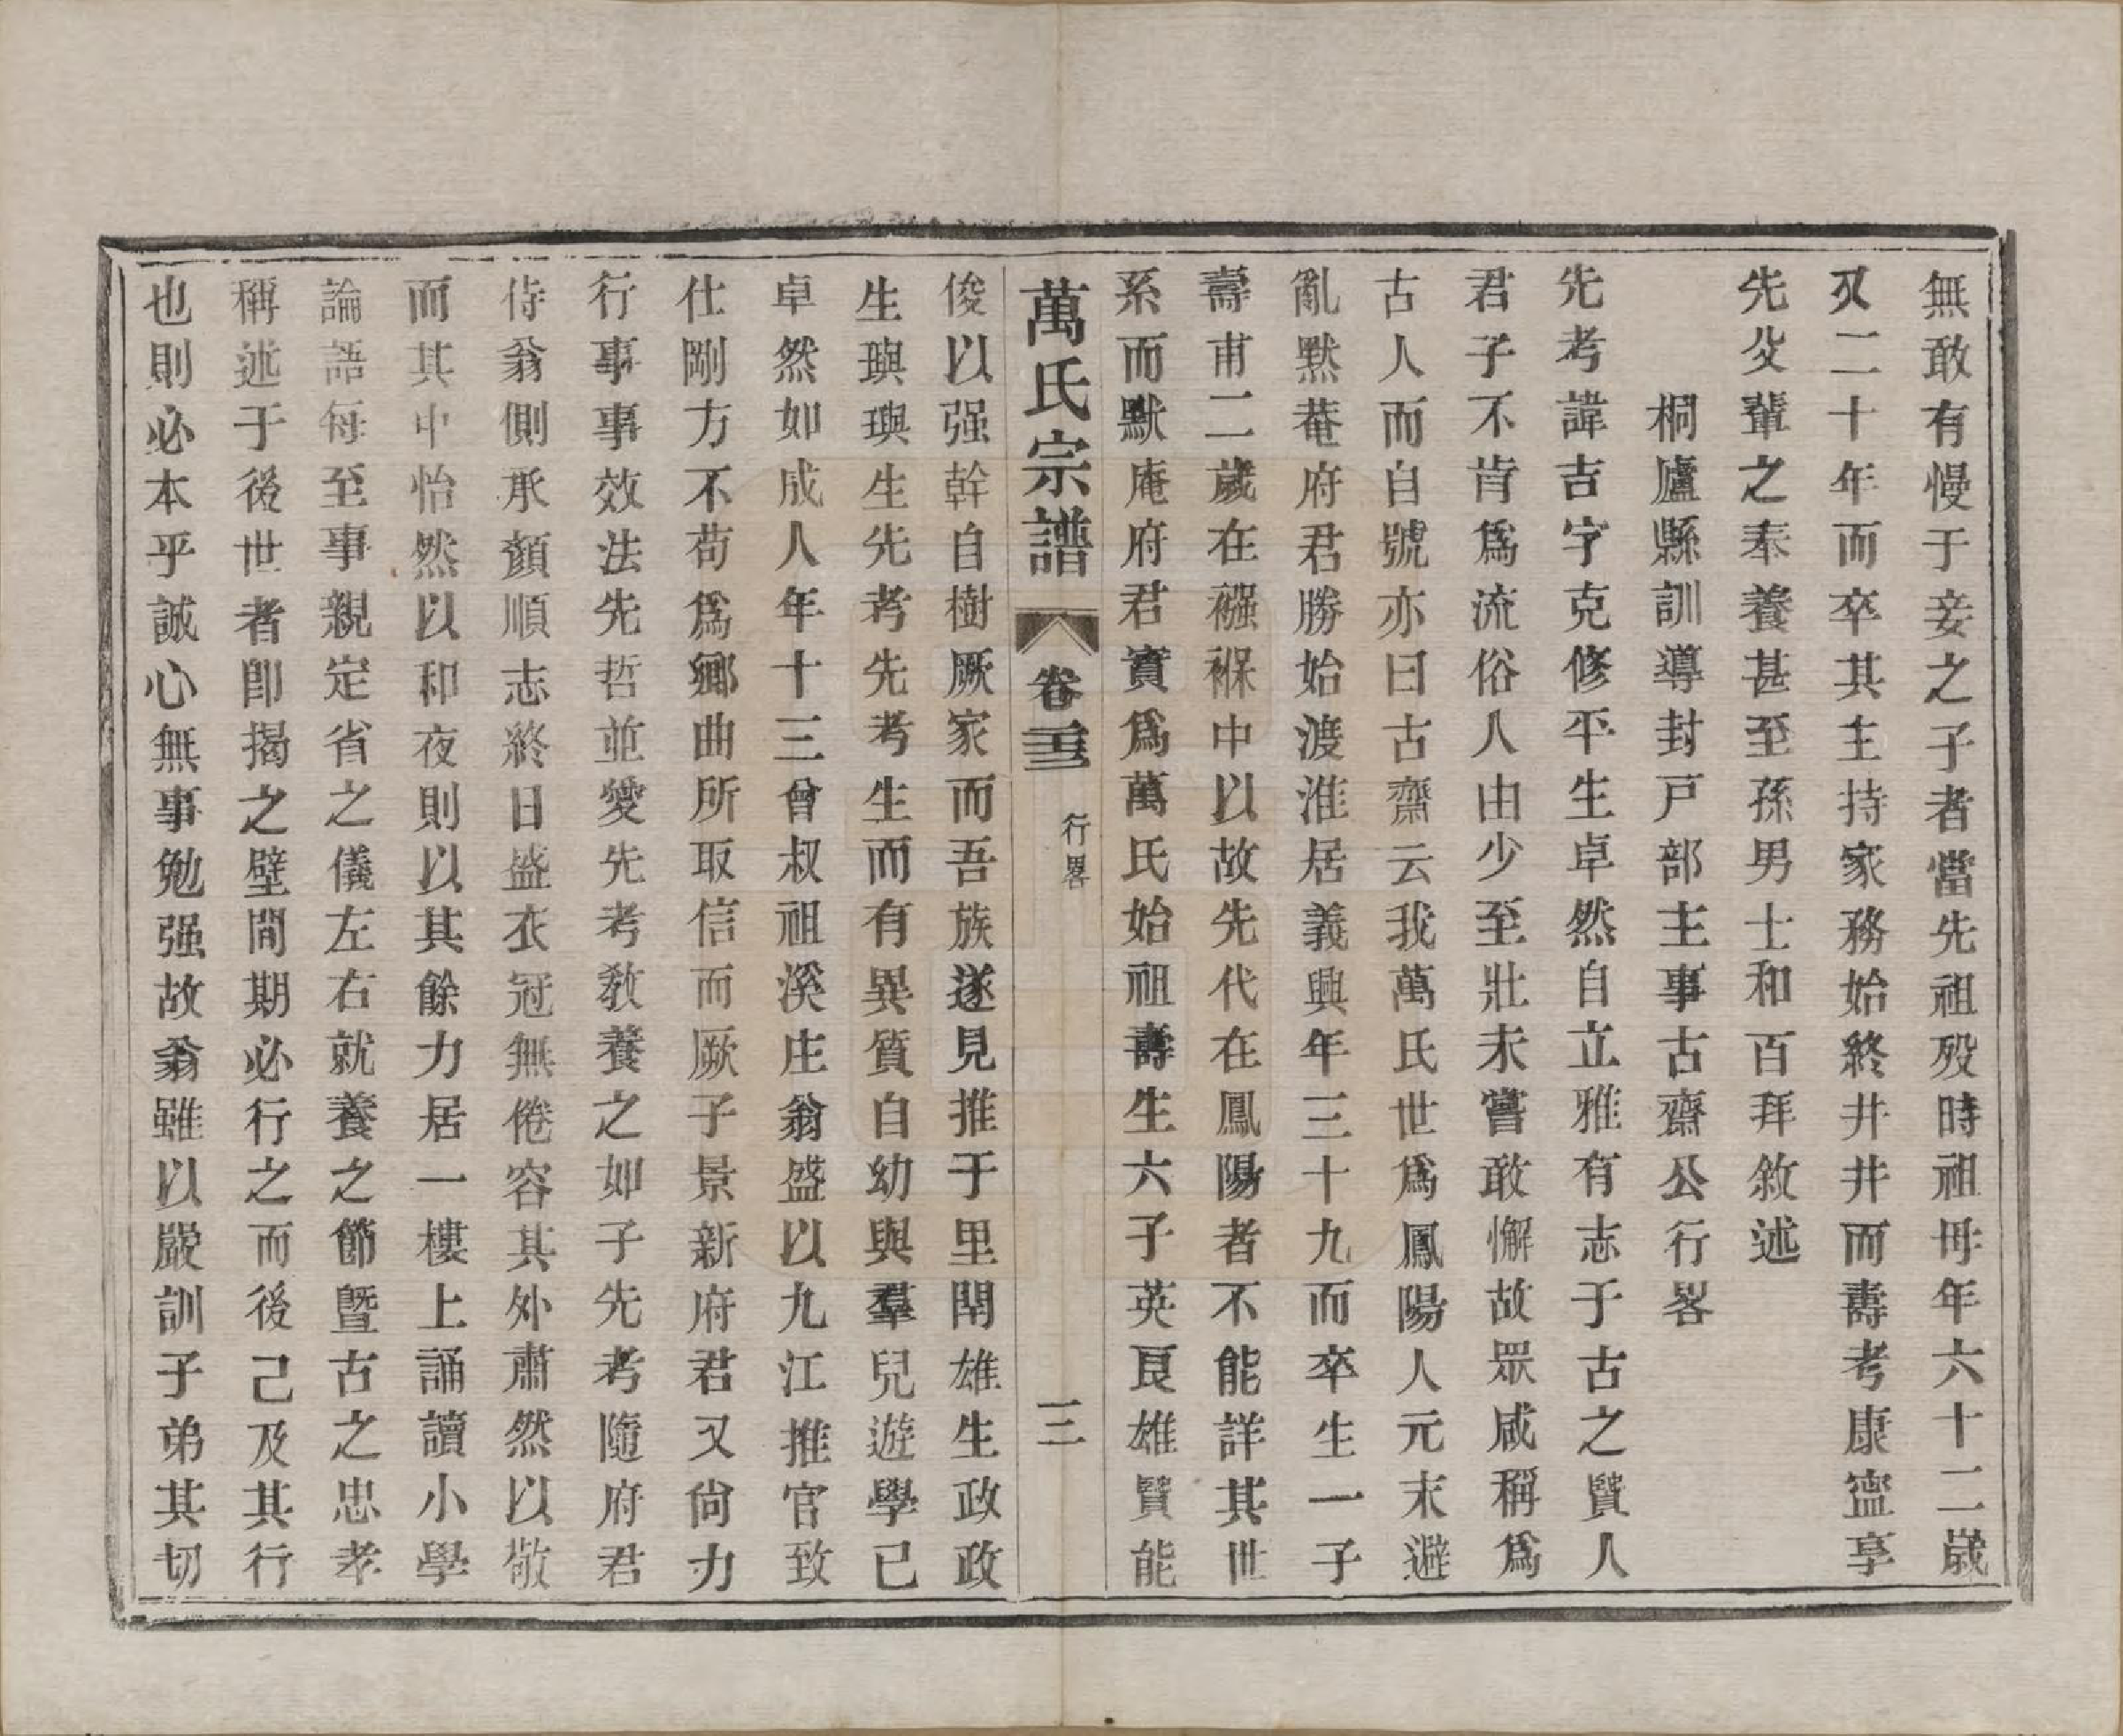 無敢有慢于妾之子者當先祖歿時祖母年六十二歲
又二十年而卒其主持家務始終井井而壽考康寍享
先父輩之奉養甚至孫男士和百拜敘述
桐廬縣訓導封戸部主事古齋公行畧
先考諱吉字克修平生卓然自立雅有志于古之賢人
君子不肯爲流俗人由少至壯未嘗敢懈故眾咸稱爲
古人而自號亦曰古齋云我萬氏世爲鳳陽人元末避
亂黙菴府君勝始渡淮居義興年三十九而卒生一子
壽甫二歲在襁褓中以故先代在鳳陽者不能詳其世
系而默庵府君實爲萬氏始祖壽生六子英良雄賢能
萬氏宗譜
卷三
行畧
三
俊以强幹自樹厥家而吾族遂見推于里閈雄生政政
生璵璵生先考先考生而有異質自幼與羣兒遊學已
卓然如成人年十三曾叔祖溪庄翁盛以九江推官致
仕剛方不苟爲鄉曲所取信而厥子景新府君又尙力
行事事效法先哲並愛先考教養之如子先考隨府君
侍翁側承顏順志終日盛衣冠無倦容其外肅然以敬
而其中怡然以和夜則以其餘力居一樓上誦讀小學
論語每至事親定省之儀左右就養之節曁古之忠孝
稱述于後世者卽揭之壁間期必行之而後己及其行
也則必本乎誠心無事勉强故翁雖以嚴訓子弟其切